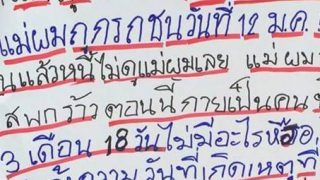 แม่ผมถูกรถชนวันที่ 12 ม.ค.
นแล้วหนีไม่ดูแม่ผมเลย แม่ ผม
สพกร้าว ตอนนี้ กายเป็นคน
3 เดือน 18 วันไม่มีอะไรหือ
วันที่เกิดเหตุที่